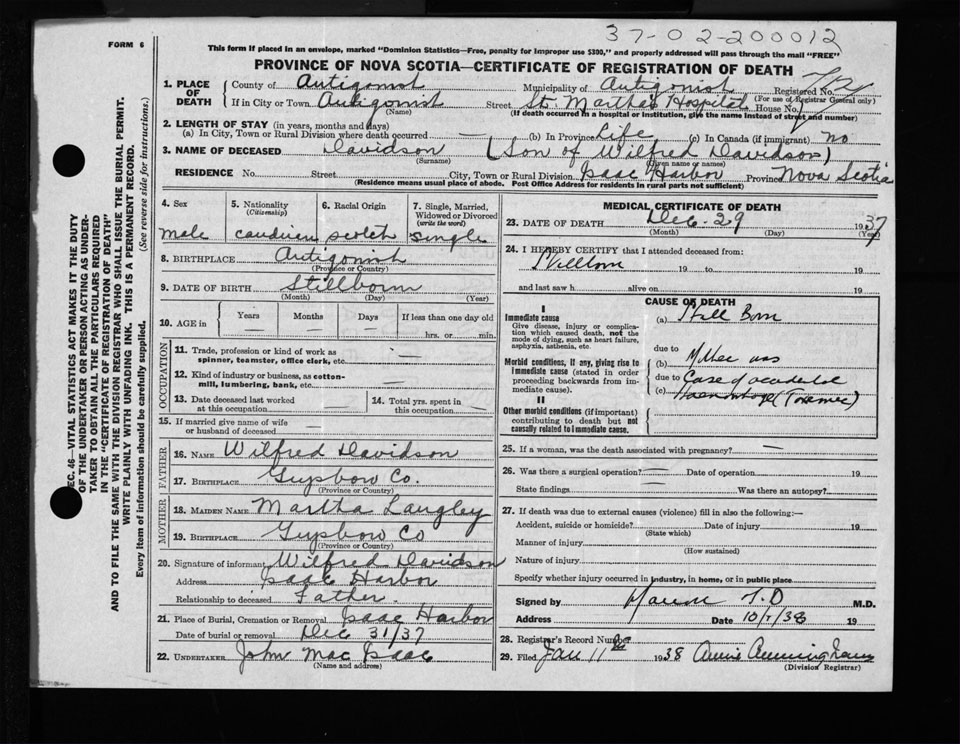 37-02-200012
FORM 6
This form if placed in an envelope, marked "Dominion Statistics—Free, penalty for improper use $300," and properly addressed will pass through the mail "FREE"
PROVINCE OF NOVA SCOTIA—CERTIFICATE OF REGISTRATION OF DEATH
1. PLACE OF DEATH
County of Antigonish Municipality of Antigonish Registered No.
(For use of Registrar General only)
If in City or Town Antigonish Street St. Martha's Hospital House No.
(Name) (If death occurred in a hospital or institution, give the name instead of street and number)
2. LENGTH OF STAY (in years, months and days)
(a) In City, Town or Rural Division where death occurred — (b) In Province Life (c) In Canada (if immigrant) no
3. NAME OF DECEASED Davidson (Son of Wilfred Davidson)
(Surname) (Given name or names)
RESIDENCE No. Street City, Town or Rural Division Isaac Harbor Province Nova Scotia
(Residence means usual place of abode. Post Office Address for residents in rural parts not sufficient)
4. Sex
male
5. Nationality
(Citizenship)
candien
6. Racial Origin
scotch
7. Single, Married, Widowed or Divorced
(write the word)
single
8. BIRTHPLACE Antigonish
(Province or Country)
9. DATE OF BIRTH Stillborn
(Month) (Day) (Year)
10. AGE in Years Months Days If less than one day old
— — — hrs. or min.
OCCUPATION
11. Trade, profession or kind of work as spinner, teamster, office clerk, etc. —
12. Kind of industry or business, as cotton-mill, lumbering, bank, etc. —
13. Date deceased last worked at this occupation —
14. Total yrs. spent in this occupation —
15. If married give name of wife or husband of deceased
FATHER
16. NAME Wilfred Davidson
17. BIRTHPLACE Guysbow Co.
(Province or Country)
MOTHER
18. MAIDEN NAME Martha Langley
19. BIRTHPLACE Guysbow Co
(Province or Country)
20. Signature of informant Wilfred Davidson
Address Isaac Harbor
Relationship to deceased Father
21. Place of Burial, Cremation or Removal Isaac Harbor
Date of burial or removal Dec 31/37
22. UNDERTAKER John Mac Isaac
(Name and address)
MEDICAL CERTIFICATE OF DEATH
23. DATE OF DEATH Dec. 29 1937
(Month) (Day)
24. I HEREBY CERTIFY that I attended deceased from:
Stillborn 19 to 19
and last saw h alive on 19
CAUSE OF DEATH
I
Immediate cause
Give disease, injury or complication which caused death, not the mode of dying, such as heart failure, asphyxia, asthenia, etc.
(a) Still Born
due to
Morbid conditions, if any, giving rise to immediate cause (stated in order proceeding backwards from immediate cause).
(b) Mother was
due to Case of accidental
(c) Haemorrhage (Toxemic)
II
Other morbid conditions (if important) contributing to death but not causally related to immediate cause.
25. If a woman, was the death associated with pregnancy? —
26. Was there a surgical operation? — Date of operation 19
State findings — Was there an autopsy?
27. If death was due to external causes (violence) fill in also the following:—
Accident, suicide or homicide? Date of injury 19
(State which)
Manner of injury
(How sustained)
Nature of injury
Specify whether injury occurred in industry, in home, or in public place
Signed by M.D.
Address Date 10/1/38 19
28. Registrar's Record Number
29. Filed Jan 11th 1938 Annie Cunningham
(Division Registrar)
SEC. 46—VITAL STATISTICS ACT MAKES IT THE DUTY
OF THE UNDERTAKER OR PERSON ACTING AS UNDER-
TAKER TO OBTAIN ALL THE PARTICULARS REQUIRED
IN THE "CERTIFICATE OF REGISTRATION OF DEATH"
AND TO FILE THE SAME WITH THE DIVISION REGISTRAR WHO SHALL ISSUE THE BURIAL PERMIT.
WRITE PLAINLY WITH UNFADING INK. THIS IS A PERMANENT RECORD.
Every item of information should be carefully supplied. (See reverse side for instructions.)